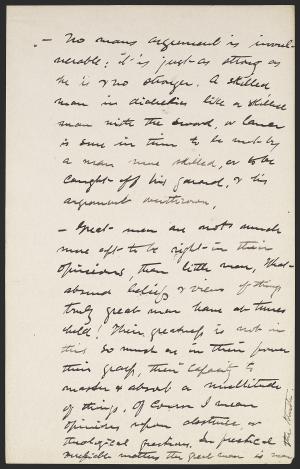 — No mans argument is invul-
nerable; it is just as strong as
he is & no stronger. A skilled
man in dialectics like a skilled
man with the sword, or lance
is sure in time to be met by
a man more skilled, or to be
caught off his guard, & his
argument overthrown,
— Great men are not much
more apt to be right in their
opinions, than little men, What
absurd beliefs & views of things
truly great men have at times
held! Their greatness is not in
this so much as in their power
their grasp, their capacity to
master & absorb a multitude
of things. Of course I mean
opinions upon abstruse, or
theological questions. In practical
matters the great man is